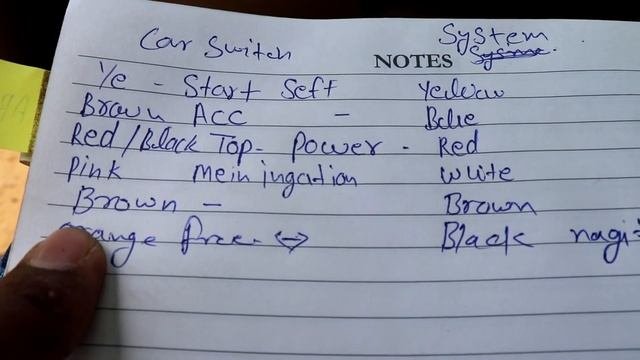 Car Switch System
NOTES
Ye - Start Seft Yellow
Brown ACC - Blue
Red/Black Top - Power - Red
Pink Mein ingation White
Brown - Brown
orange free Black nagi